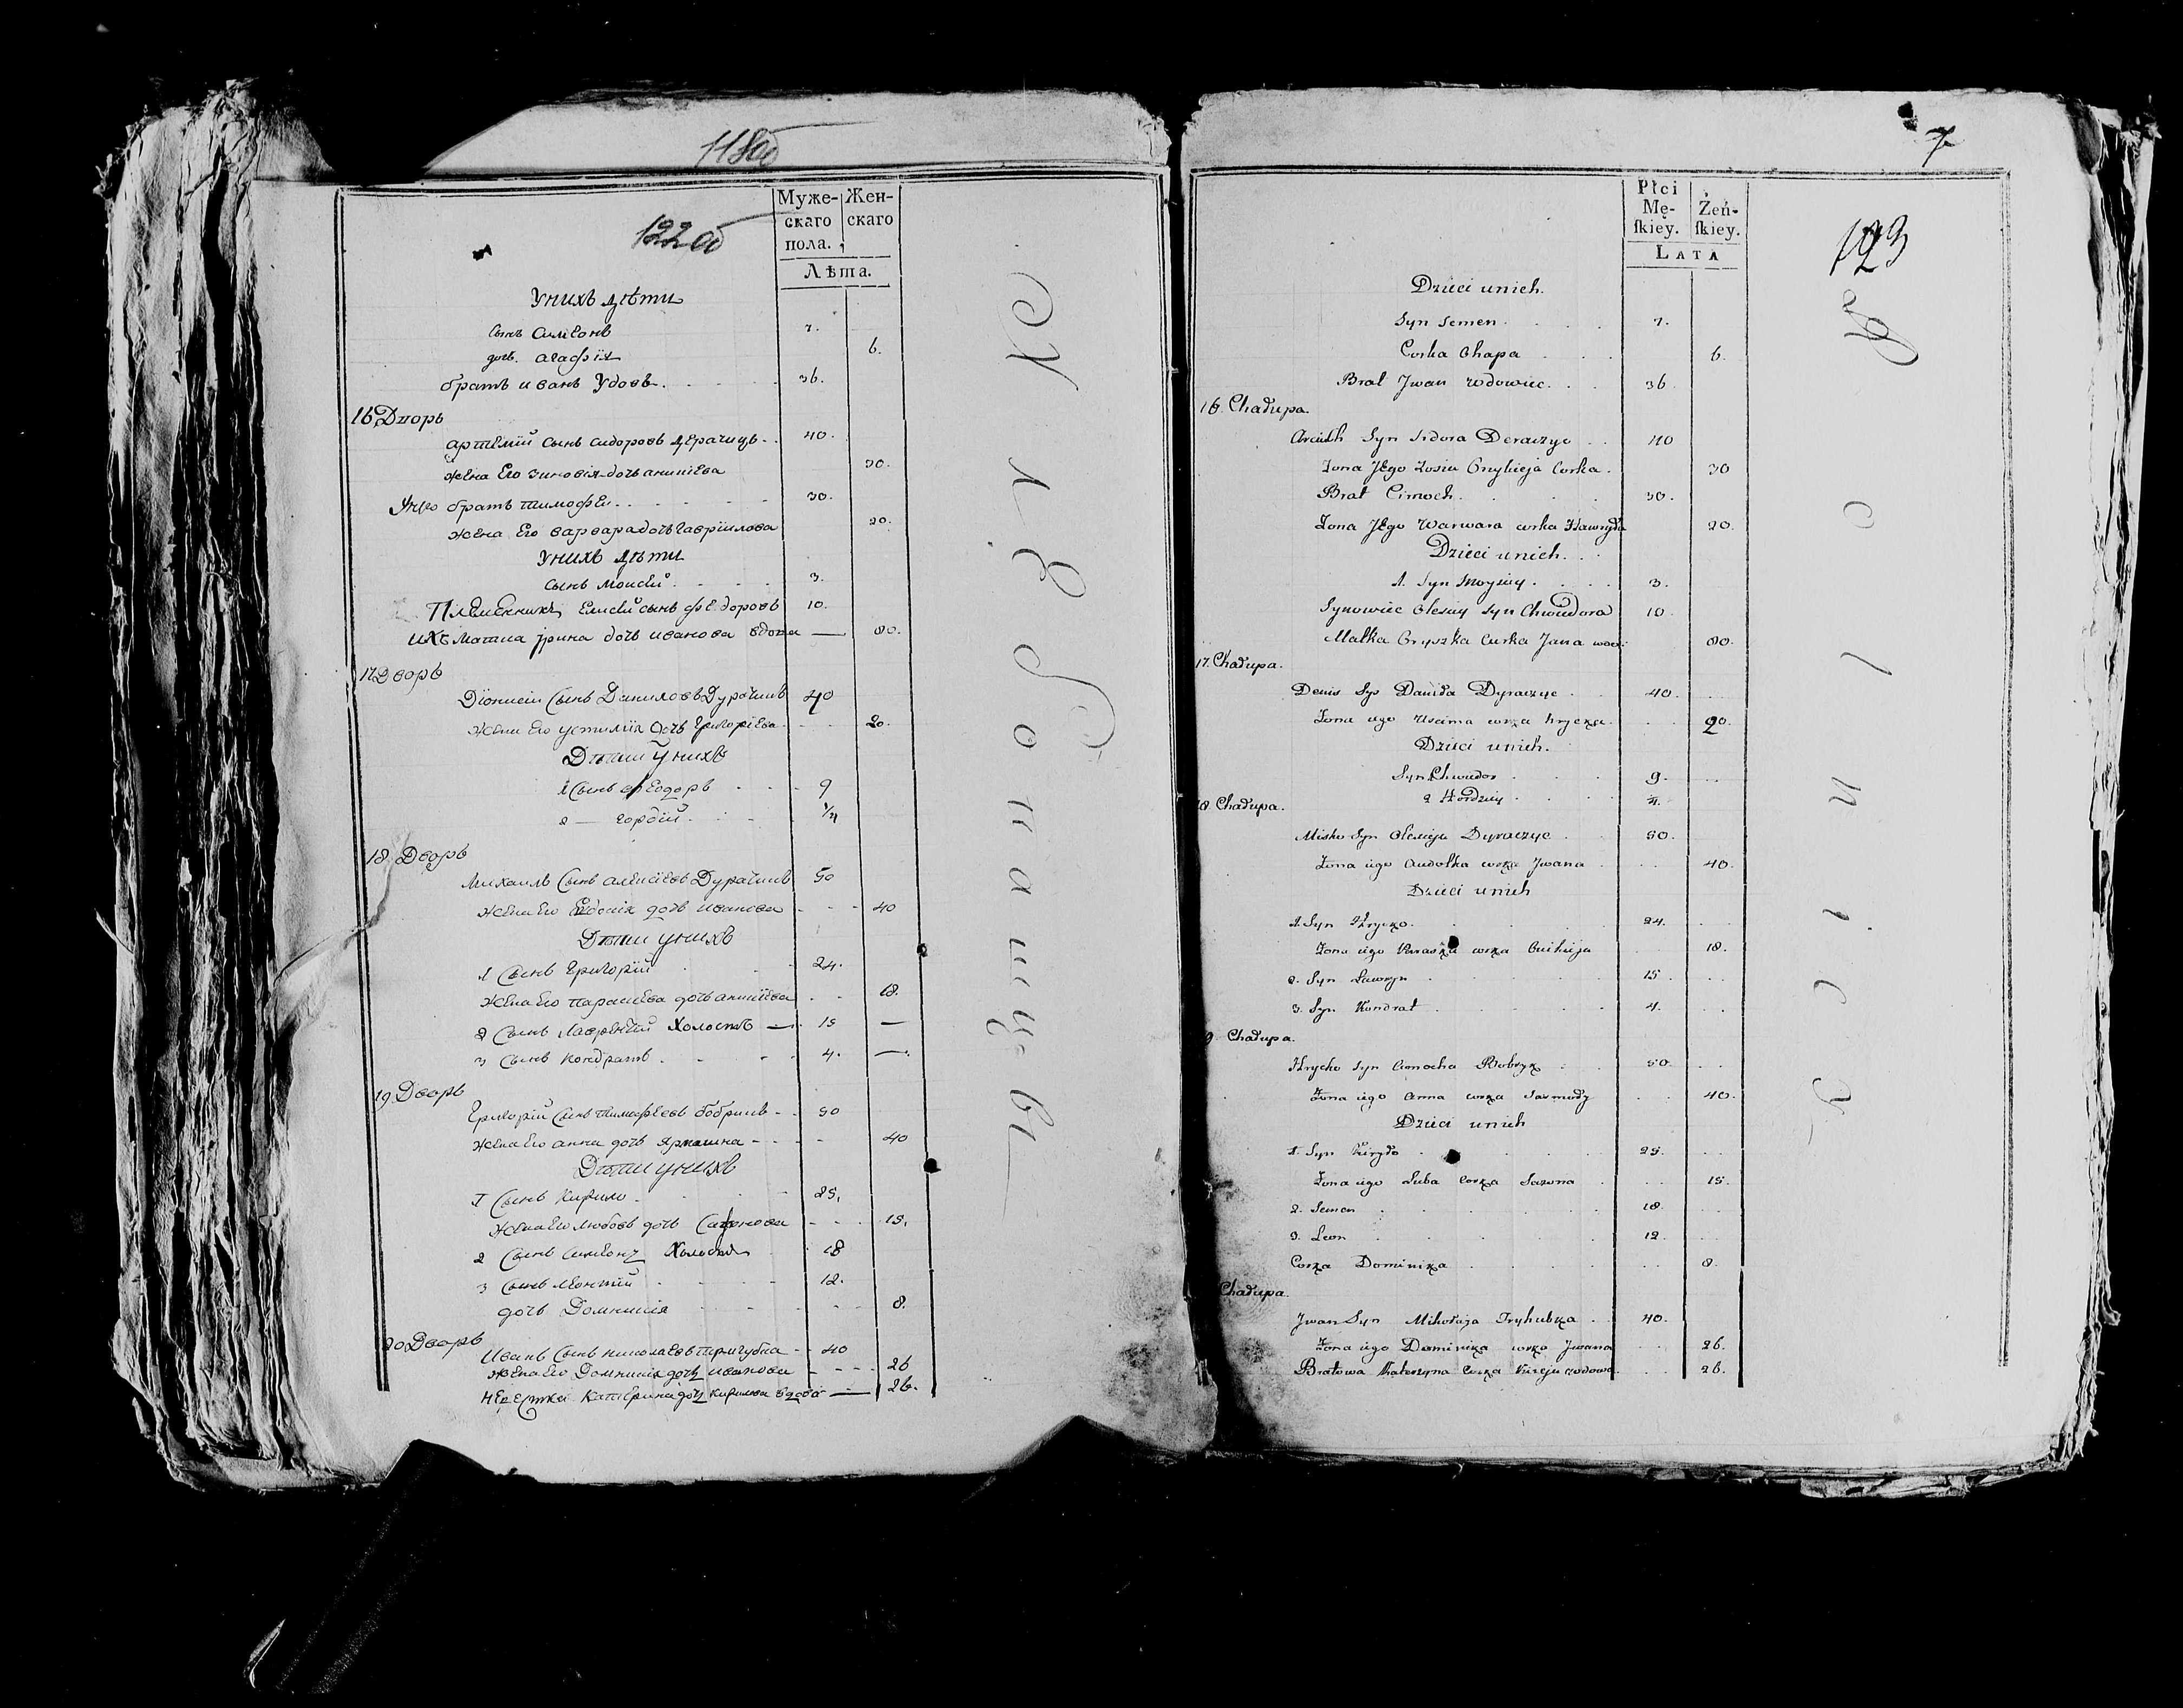 118об
122об
Муже-
скаго
пола.
Жен-
скаго
Лѣта.
Унихъ дѣти
сынъ Симеонъ 7.
дочь агафія 6.
братъ иванъ Удовъ. 36.
16 Дворъ
артемій сынъ сидоровъ дерачицъ 40.
жена Его зиновія дочь аникіева 30.
Унго братъ тимофеи. 30.
жена Его варвара дочь гавріилова 20.
Унихъ дѣти
сынъ моисей 3.
Племенникъ Елисей сынъ федоровъ 10.
ихъ матиа ірина дочь иванова вдова — 80.
17 Дворъ
Діонисіи Сынъ Даниловъ Дурачицъ 40
жена Его устимія дочь григоріева 20.
Дѣти Унихъ
1 Сынъ феодоръ 9
2 — гордій 1/4
18. Дворъ
михаилъ Сынъ алексіевъ Дурачицъ 50
жена Его Евдокія дочь иванова 40
Дѣти унихъ
1 Сынъ Григорій 24.
жена Его парасцева дочь аникіева 18.
2 Сынъ Лаврѣнтій Холостъ — 15 —
3 Сынъ Кондратъ 4. —
19 Дворъ
Григорій Сынъ тимофеевъ бобрикъ 50
жена Его анна дочь Ярмашка 40
Дѣти унихъ
1 Сынъ Кирило 25,
жена Его любовь дочь Сазонова 15,
2 Сынъ симеонъ Холостъ 18
3 Сынъ леонтій 12.
дочь Домникія 8.
20 Дворъ
Иванъ Сынъ николаевъ тригубка 40
жена Его Домникія дочь иванова 26
Невестка Катерина дочь кирилова вдова — 26.
7
Płci
Mę-
ſkiey.
Żeń-
ſkiey.
LATA
123
Dzieci unich.
Syn Semen 7.
Corka Ohapa 6.
Brat Jwan wdowiec. 36
16. Chałupa.
Syn Sidora Deraczyc 40
Zona JEgo Zosia Onykieja Corka. 30
Brat Cimoch. 30.
Zona JEgo Warwara corka Hawryła 20.
Dzieci unich.
1. Syn Moysiey 3.
Synowiec Olesiey Syn Chwiedora 10
Matka Oryszka Curka Jana 80.
17. Chałupa.
Denis Syn Daniła Dyraczyc 40.
Zona iego Uscima corka hrycka 20.
Dzieci unich.
Syn Chwiedor 9.
2 Hordziey 4.
18 Chałupa.
Misko Syn Olexieja Dyraczyc 50.
Zona iego Audotka corka Jwana 40.
Dzieci unich
1. Syn Hrycko 24.
Zona iego Paraska corka Onikieja 18.
2. Syn Ławryn 15
3. Syn Kondrat 4.
9 Chałupa.
Hrycko Syn Cimocha Bobryk 50.
Zona iego Anna corka Jarmudy 40.
Dzieci unich
1. Syn Kiryło 25.
Zona iego Luba Corka Sazona 15.
2. Semen 18.
3. Leon 12
Corka Dominika 8.
Chałupa.
Jwan Syn Mikołaja Tryhubka 40.
Zona iego Dominika corka Jwana 26.
Bratowa Katerzyna Corka Kireja wdowa 26.